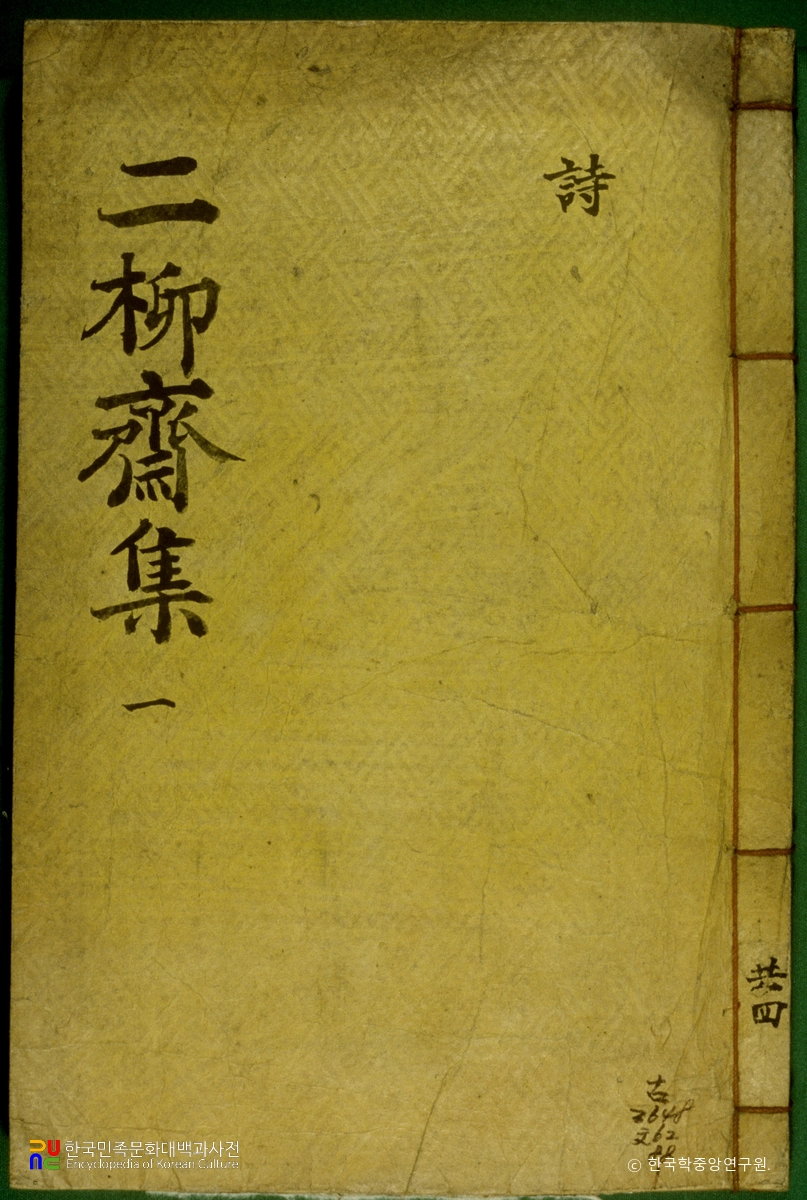 詩
二柳齋集 一
共四
古
3648
文62
한국민족문화대백과사전
Encyclopedia of Korean Culture
ⓒ 한국학중앙연구원.